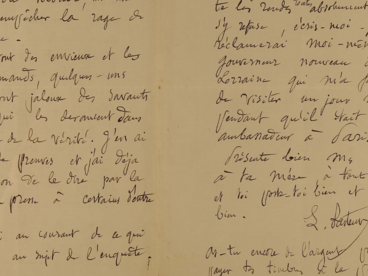 empêcher la rage de
ont des envieux et les
mands, quelques-uns
ont jaloux des savants
qui les devancent dans
de la vérité. J'en ai
preuves et j'ai déjà
on de le dire par la
presse à certains d'entre
au courant de ce qui
au sujet de l'enquête.
te les rendes absolument
s'y refuse, écris-moi
réclamerai moi-même
gouverneur nouveau
Lorraine qui m'a
de visiter un jour
pendant qu'il était
ambassadeur à Paris
Présente bien
à ta mère à tout
et toi porte-toi bien et
bien.
L. Pasteur
As-tu encore de l'argent
payer tes timbres